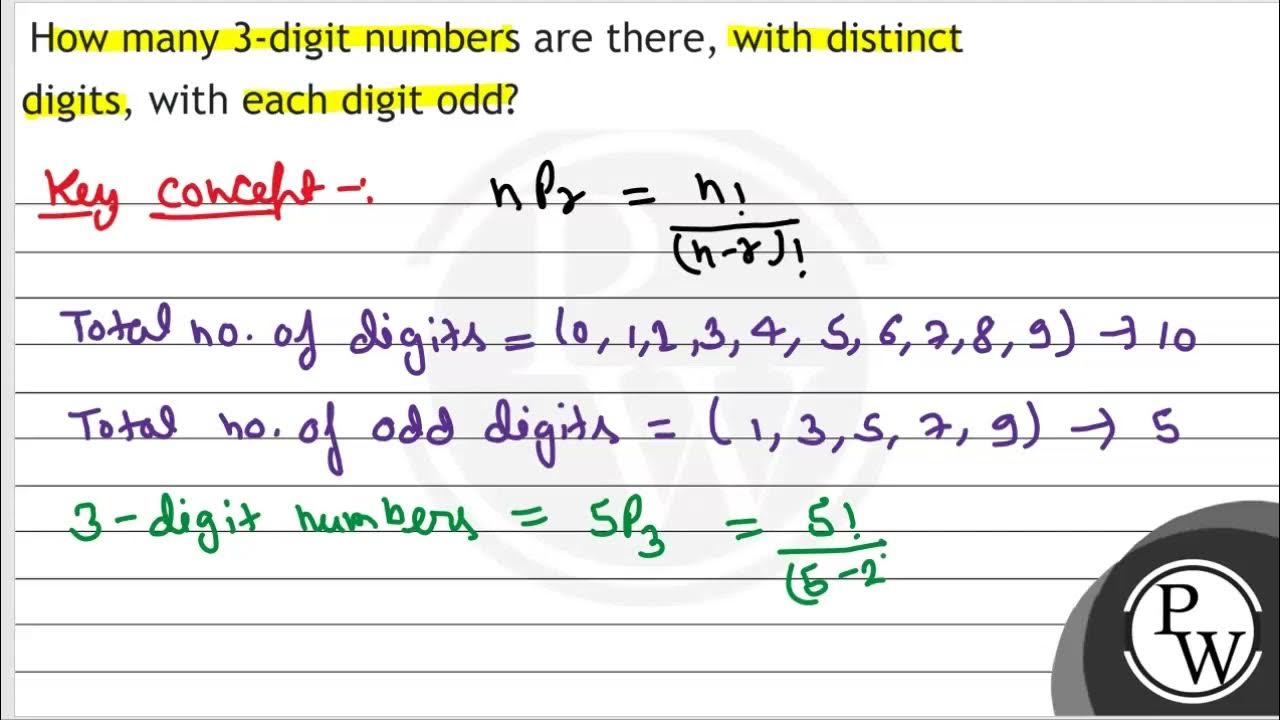 How many 3-digit numbers are there, with distinct
digits, with each digit odd?
Key concept -: nPr = n!/(n-r)!
Total no. of digits = (0, 1, 2, 3, 4, 5, 6, 7, 8, 9) → 10
Total no. of odd digits = (1, 3, 5, 7, 9) → 5
3-digit numbers = 5P3 = 5!/(5-2
PW
PW